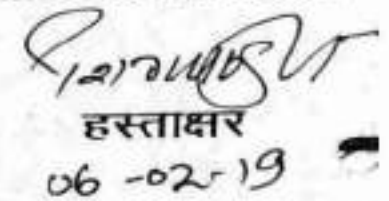 हस्ताक्षर
06-02-19